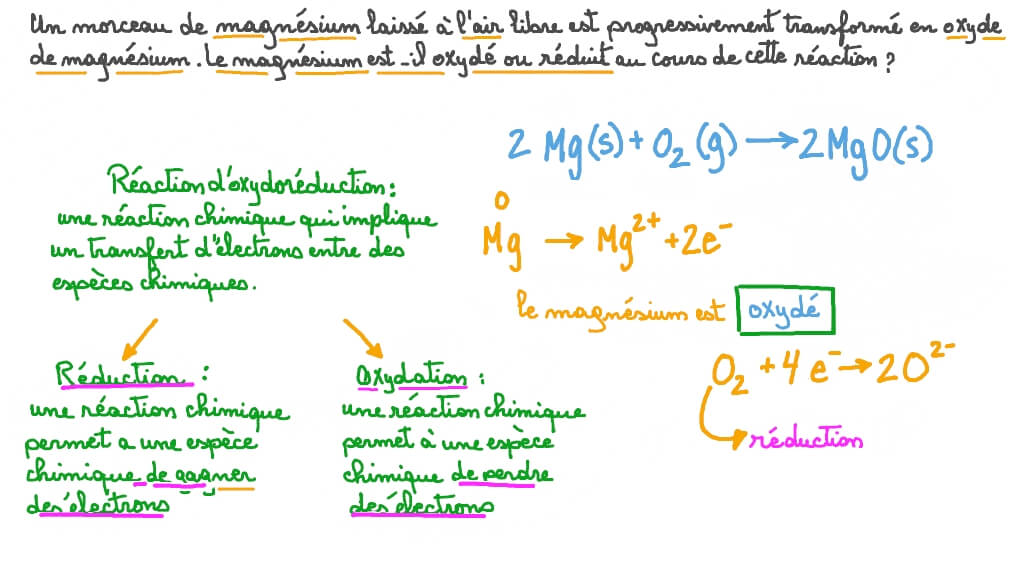 Un morceau de magnésium laissé à l'air libre est progressivement transformé en oxyde
de magnésium. Le magnésium est-il oxydé ou réduit au cours de cette réaction ?
2 Mg(s) + O₂(g) → 2MgO(s)
Réaction d'oxydoréduction :
une réaction chimique qui implique
un transfert d'électrons entre des
espèces chimiques.
0
Mg → Mg²⁺ + 2e⁻
le magnésium est oxydé
O₂ + 4e⁻ → 2O²⁻
réduction
Réduction :
une réaction chimique
permet a une espèce
chimique de gagner
des électrons
Oxydation :
une réaction chimique
permet à une espèce
chimique de perdre
des électrons